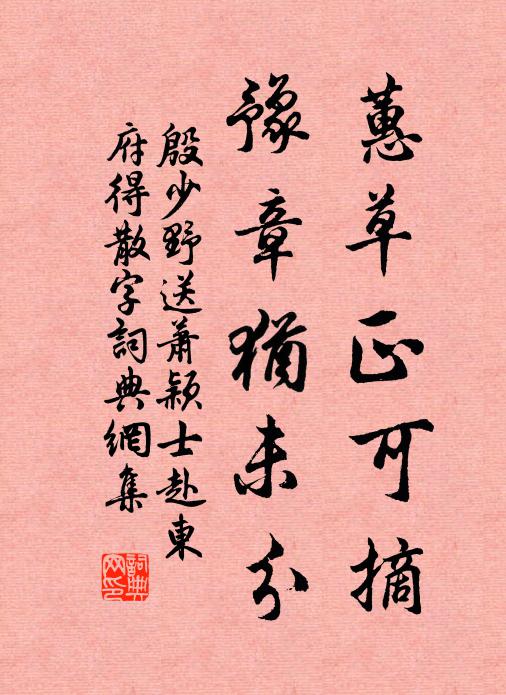 蕙草正可摘
豫章猶未分
殷少野送蕭潁士赴東
府得散字詞典網集
詞典
网印